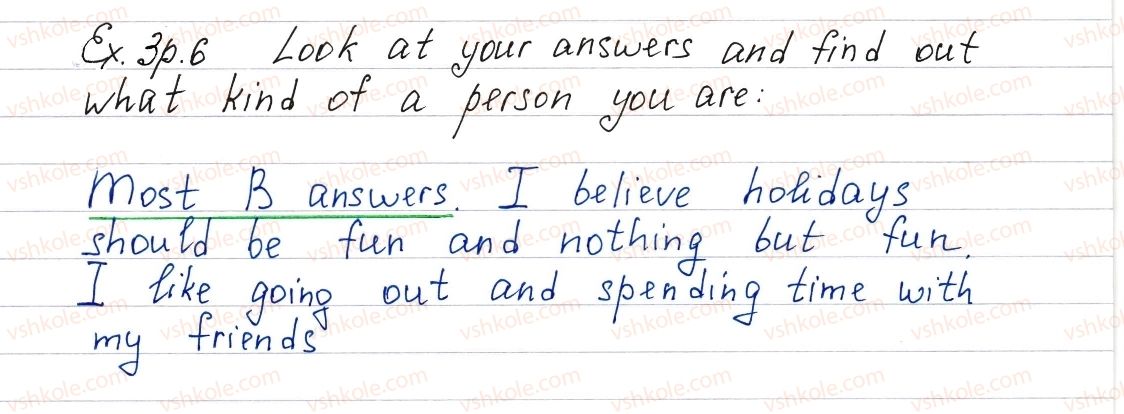 Ex. 3p.6 Look at your answers and find out
what kind of a person you are:
Most B answers. I believe holidays
should be fun and nothing but fun.
I like going out and spending time with
my friends